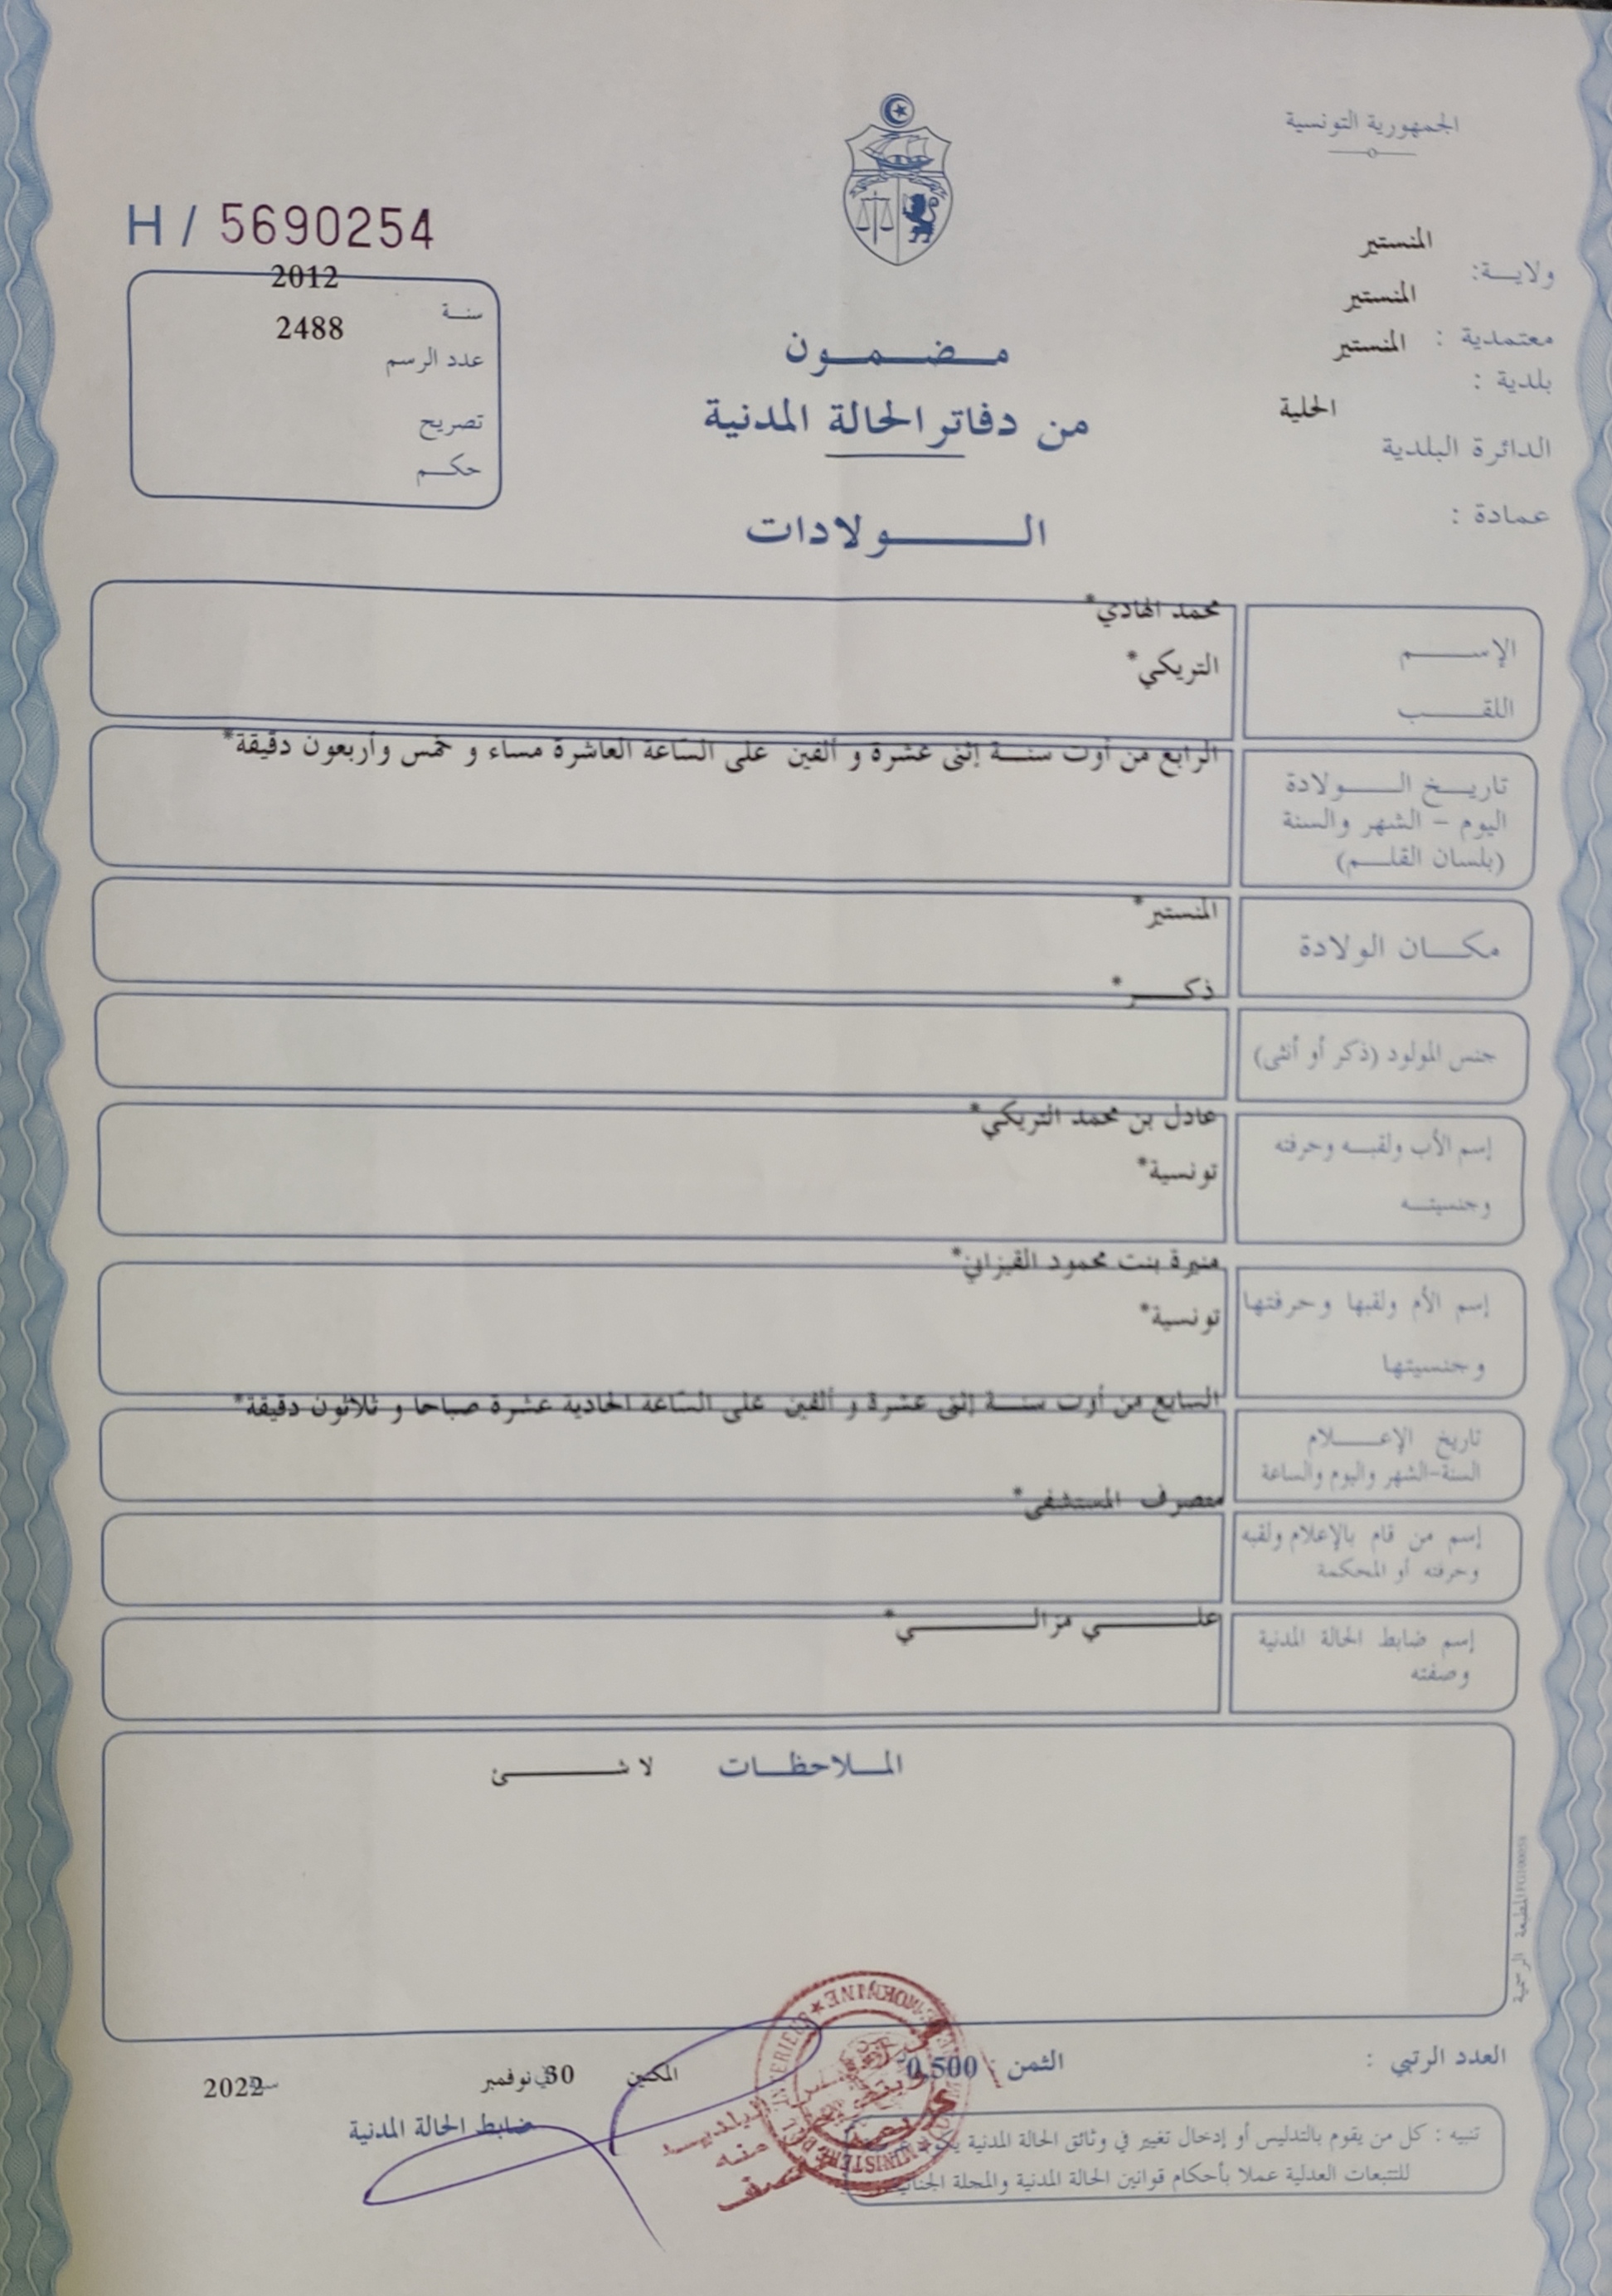 الجمهورية التونسية
H / 5690254
ولايـــة: المنستير
معتمدية : المنستير
بلدية : المنستير
الدائرة البلدية الحلية
عمادة :
سنـة 2012
عدد الرسم 2488
تصريح
حكـم
مـضـمـون
من دفاتر الحالة المدنية
الـــولادات
الإســـم محمد الهادي*
اللقـــب التريكي*
تاريـــخ الـــولادة الرابع من أوت سنـــة إثنى عشرة و ألفين على السّاعة العاشرة مساء و خمس وأربعون دقيقة*
اليوم - الشهر والسنة
(بلسان القلـــم)
مكـــان الولادة المنستير*
جنس المولود (ذكر أو أنثى) ذكـــر*
إسم الأب ولقبـــه وحرفته عادل بن محمد التريكي*
وجنسيتـــه تونسية*
إسم الأم ولقبها وحرفتها منيرة بنت محمود الفيزاني*
وجنسيتها تونسية*
تاريخ الإعـــلام السابع من أوت سنـــة إثنى عشرة و ألفين على السّاعة الحادية عشرة صباحا و ثلاثون دقيقة*
السنة-الشهر واليوم والساعة
إسم من قام بالإعلام ولقبه متصرف المستشفى*
وحرفته أو المحكمة
إسم ضابط الحالة المدنية علـــي مزالـــي*
وصفته
الملاحظـــات لا شـــئ
المطبعة الرسمية
العدد الرتبي :
الثمن : 0,500
المكنين في 30 نوفمبر سنة 2022
ضابط الحالة المدنية
تنبيه : كل من يقوم بالتدليس أو إدخال تغيير في وثائق الحالة المدنية يكون
للتتبعات العدلية عملا بأحكام قوانين الحالة المدنية والمجلة الجنائية
MOKNINE